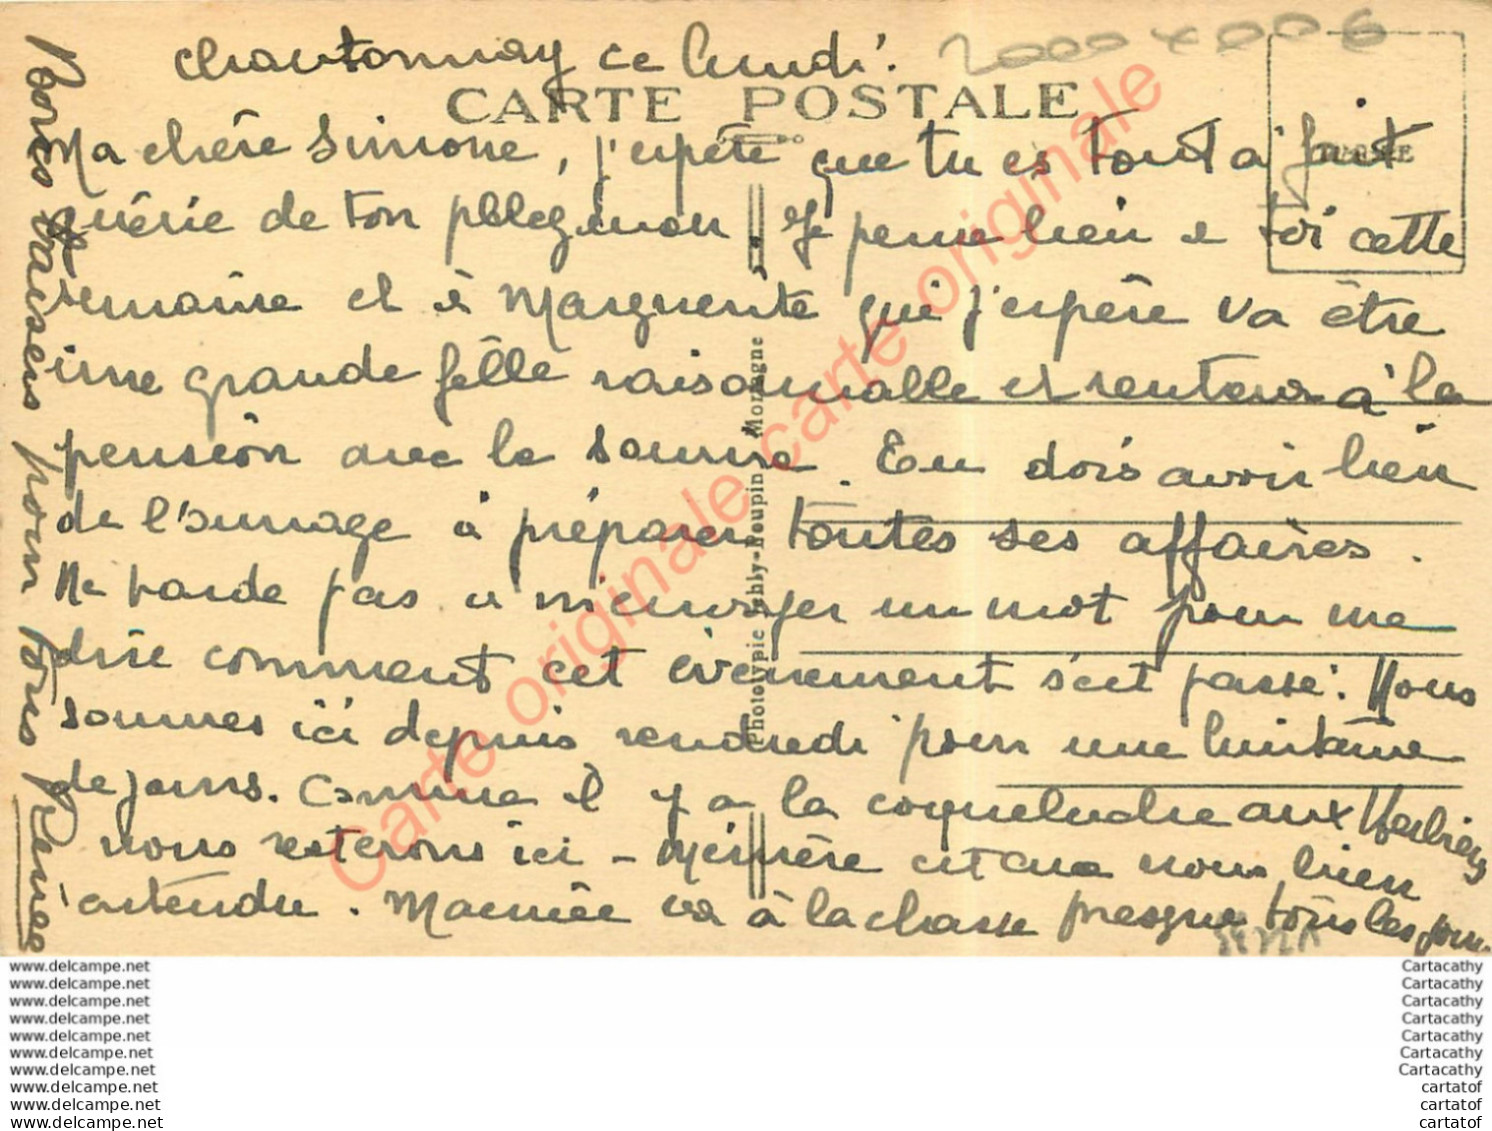 Chantonnay ce lundi.
2000 x 006
CARTE POSTALE
Ma chère Simone, j'espère que tu es tout à fait
guérie de ton phlegmon. Je pense bien à toi cette
semaine et à Marguerite qui j'espère va être
une grande fille raisonnable et rentrera à la
pension avec le sourire. Tu dois avoir bien
de l'ouvrage à préparer toutes ses affaires.
Ne tarde pas à m'envoyer un mot pour me
dire comment cet événement s'est passé. Nous
sommes ici depuis vendredi pour une huitaine
de jours. Comme il y a la coqueluche aux Herbiers
nous resterons ici - est que nous bien
entendu. va à la chasse presque tous les jours
Bons baisers pour tous Renée
Phototypie Poupin Mortagne
Carte originale carte originale
www.delcampe.net
www.delcampe.net
www.delcampe.net
www.delcampe.net
www.delcampe.net
www.delcampe.net
www.delcampe.net
www.delcampe.net
www.delcampe.net
www.delcampe.net
Cartacathy
Cartacathy
Cartacathy
Cartacathy
Cartacathy
Cartacathy
Cartacathy
cartatof
cartatof
cartatof